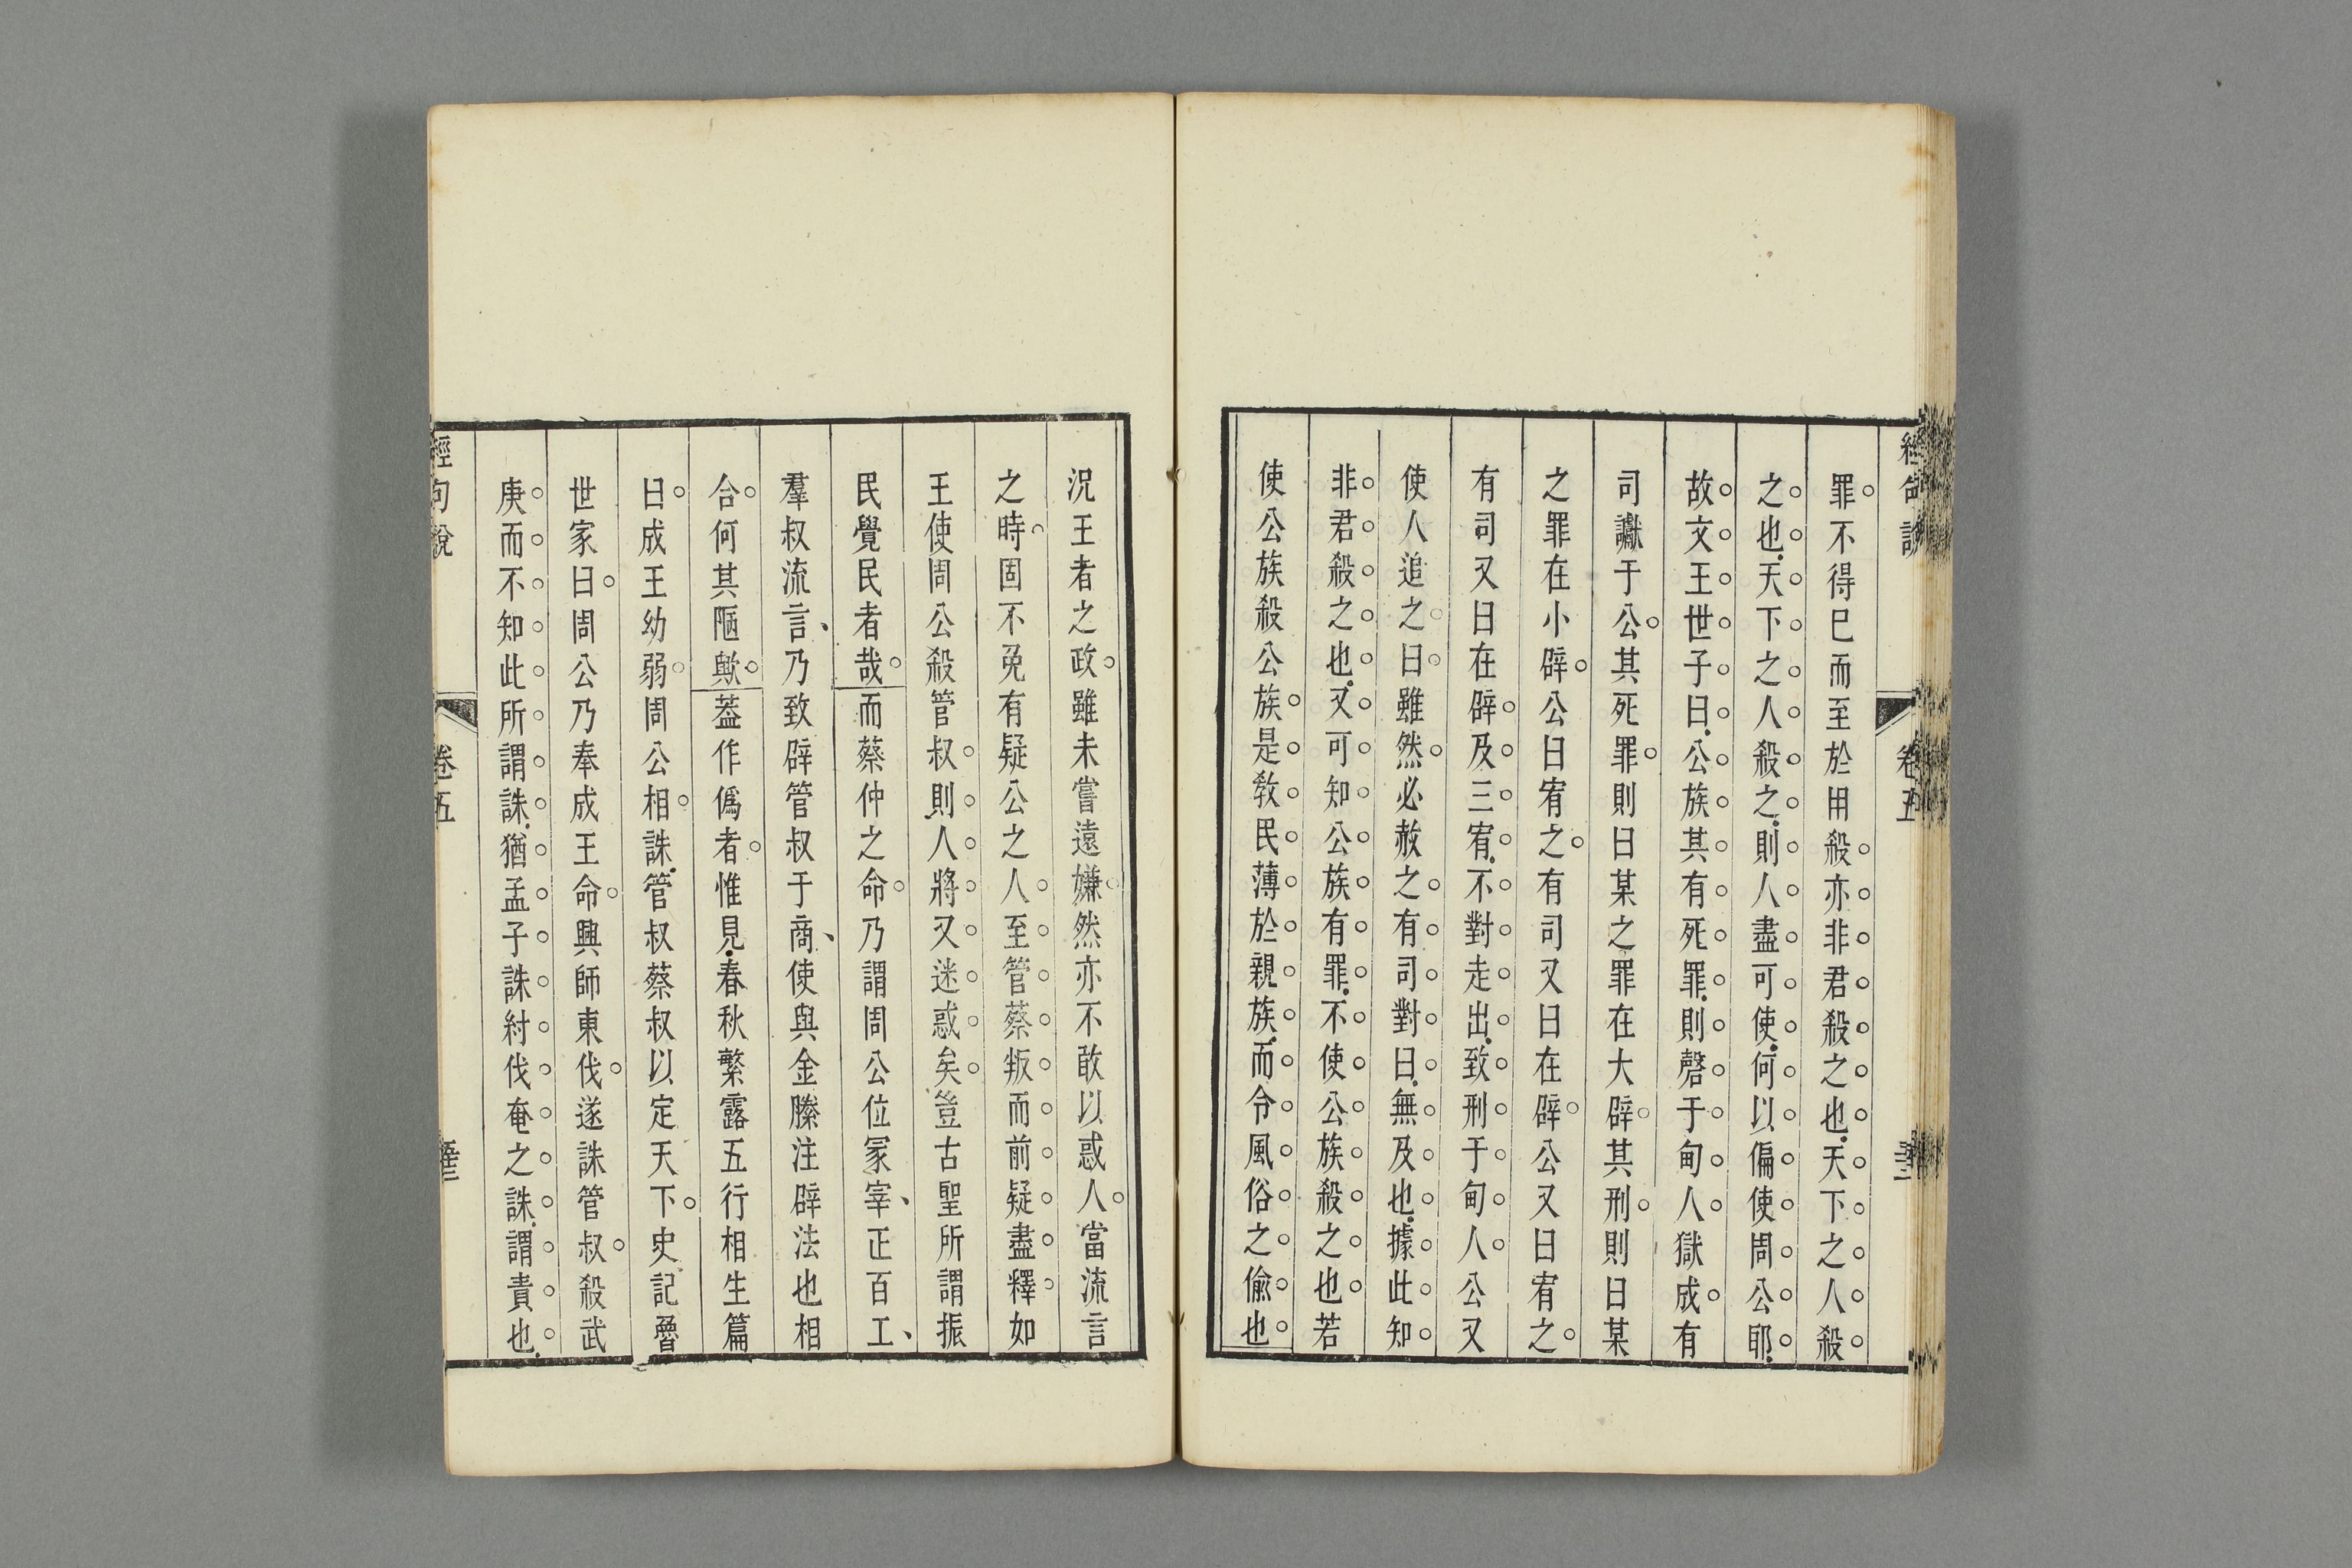 經句說
卷五
罪不得已而至於用殺亦非君殺之也天下之人殺
之也天下之人殺之則人盡可使何以偏使周公耶
故文王世子曰公族其有死罪則磬于甸人獄成有
司讞于公其死罪則曰某之罪在大辟其刑則曰某
之罪在小辟公曰宥之有司又曰在辟公又曰宥之
有司又曰在辟及三宥不對走出致刑于甸人公又
使人追之曰雖然必赦之有司對曰無及也據此知
非君殺之也又可知公族有罪不使公族殺之也若
使公族殺公族是教民薄於親族而令風俗之偸也
況王者之政雖未嘗遠嫌然亦不敢以惑人當流言
之時固不免有疑公之人至管蔡叛而前疑盡釋如
王使周公殺管叔則人將又迷惑矣豈古聖所謂振
民覺民者哉而蔡仲之命乃謂周公位冢宰正百工
羣叔流言乃致辟管叔于商使與金縢注辟法也相
合何其陋歟葢作僞者惟見春秋繁露五行相生篇
曰成王幼弱周公相誅管叔蔡叔以定天下史記魯
世家曰周公乃奉成王命興師東伐遂誅管叔殺武
庚而不知此所謂誅猶孟子誅紂伐奄之誅謂責也
經句說
卷五